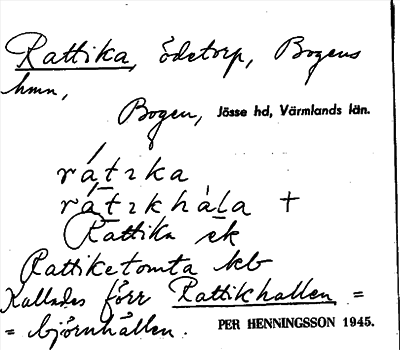 Rattika, ödetorp, Bogens
hmn,
Bogen, Jösse hd, Värmlands län.
rátıka
rátıkhàla +
Rattika ek
Rattiketomta kb
Kallades förr Rattikhallen =
= björnhållen. PER HENNINGSSON 1945.